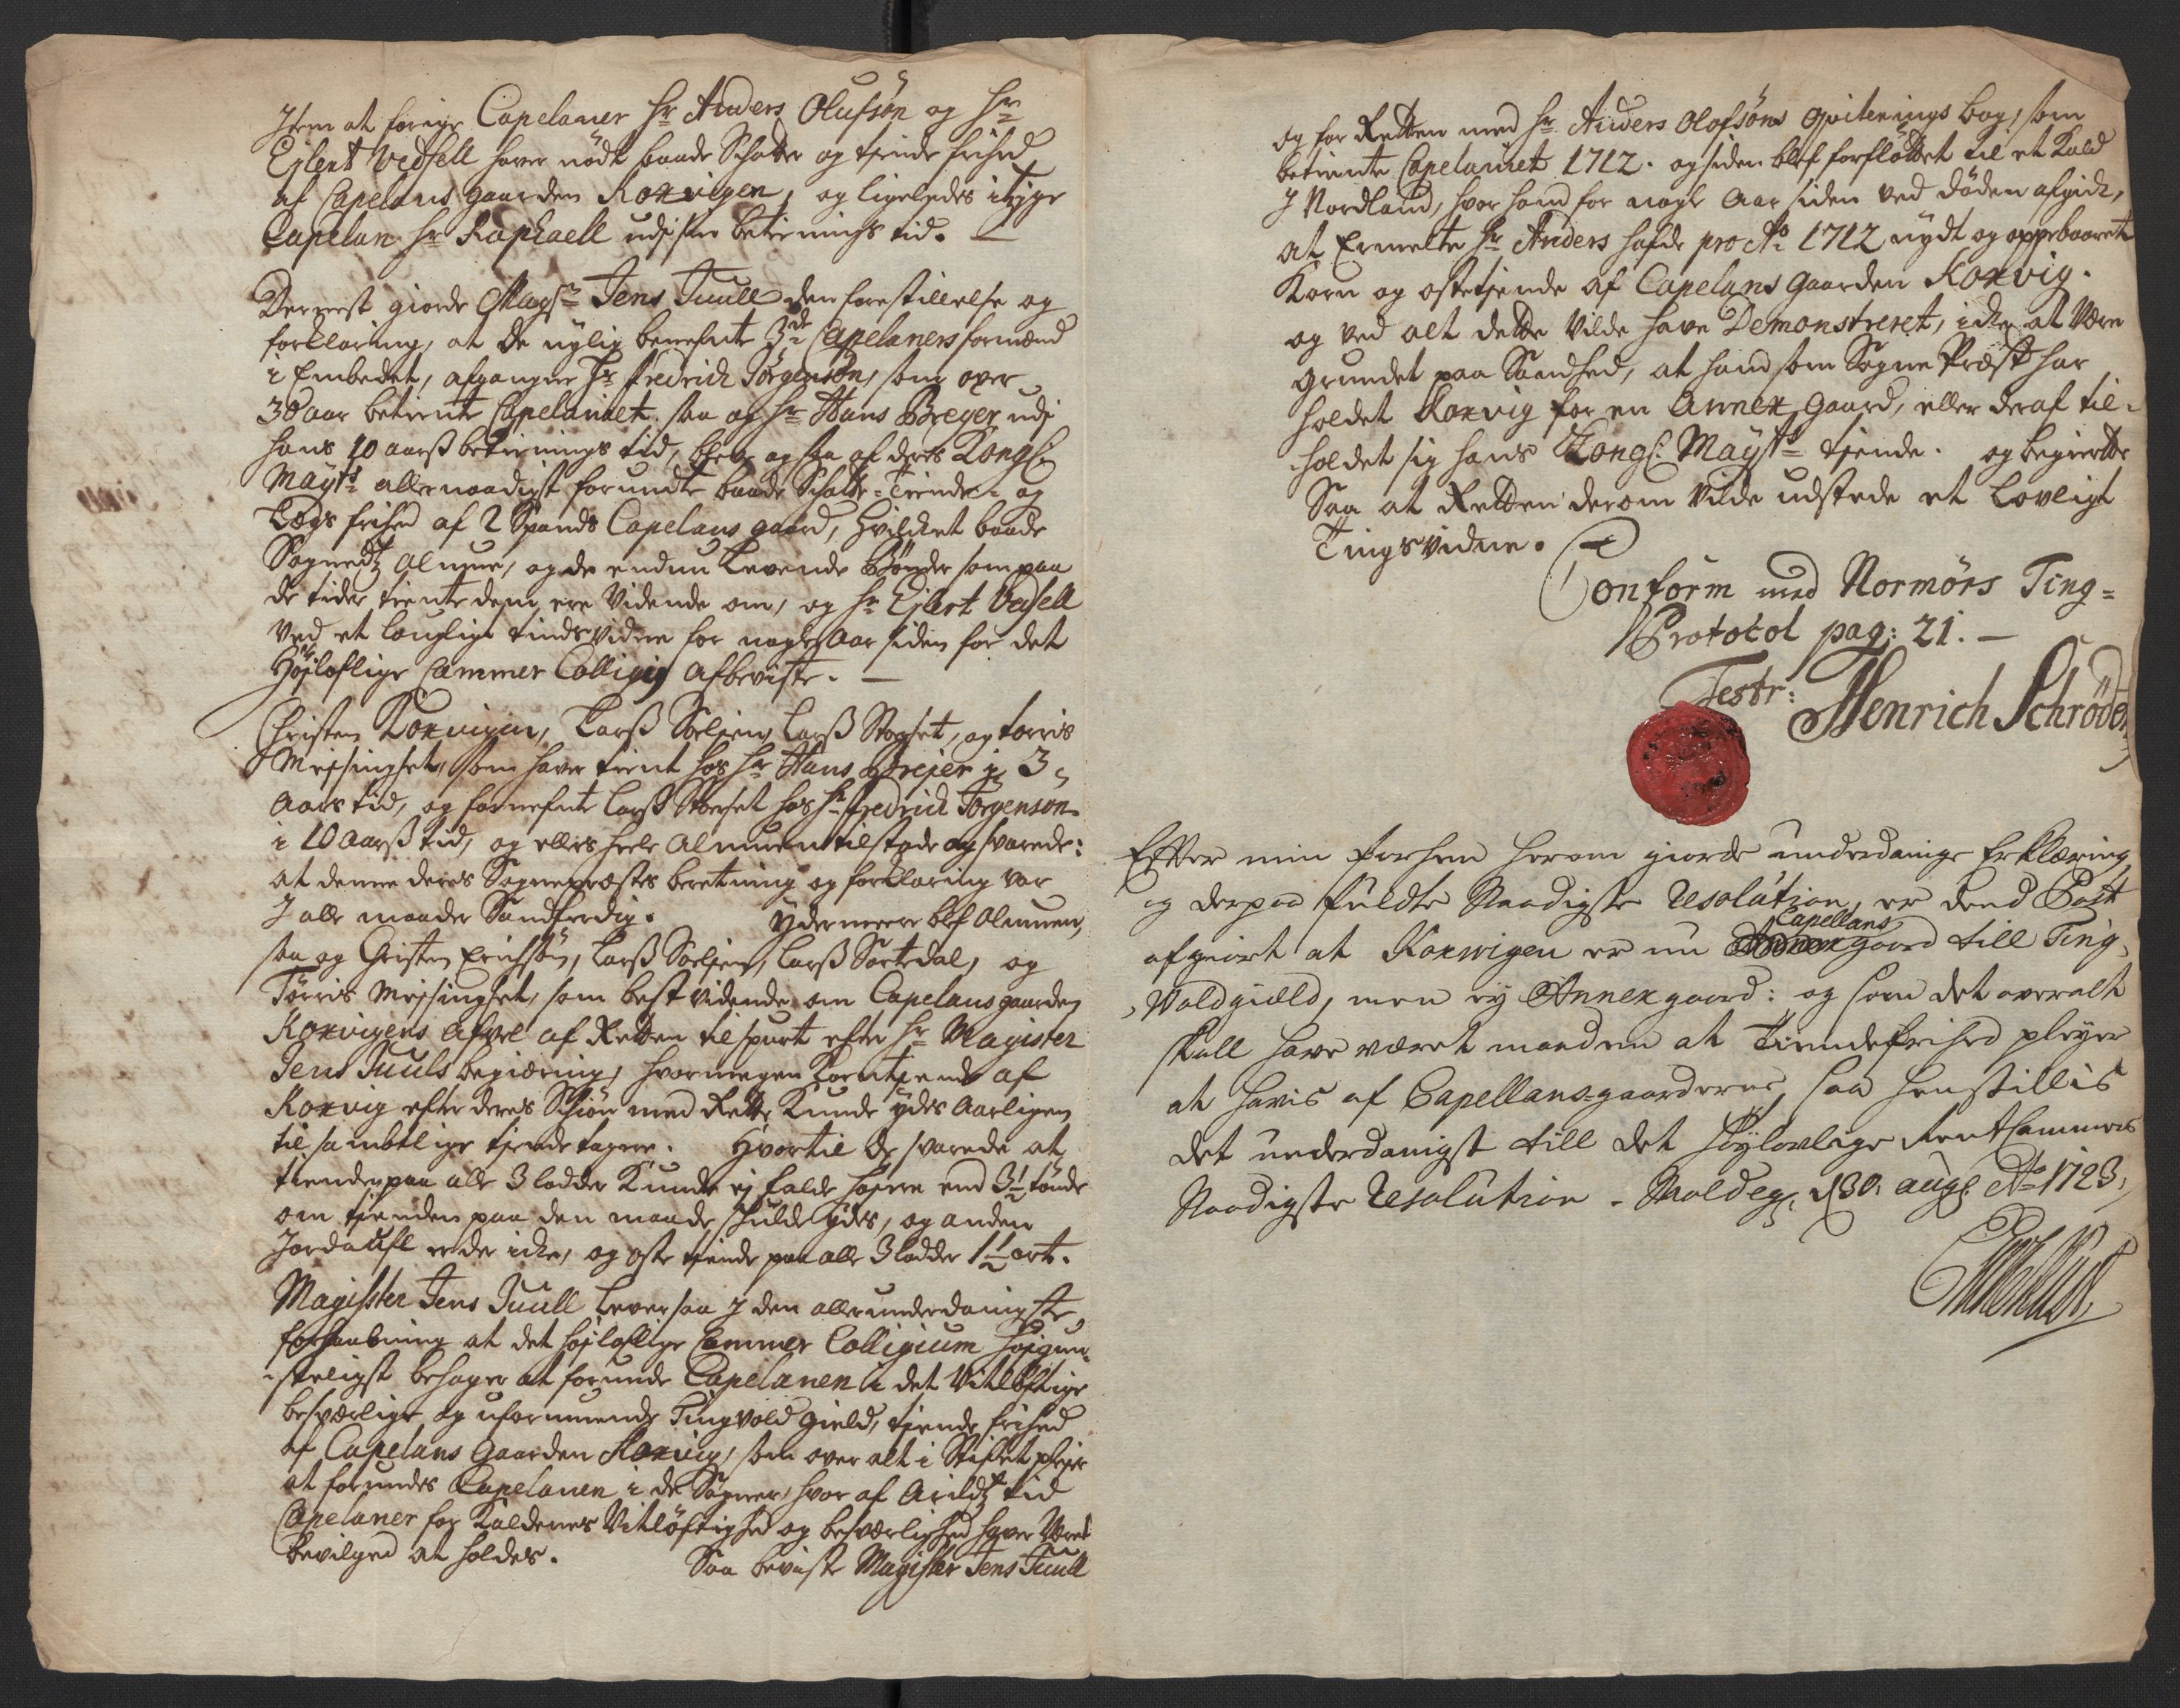 Item at forige Capelaner Hr Anders Olufsön og Hr
Ejlert Vedsell haver nödt baade Schatte og tiende frihed
af Capelans gaarden Korvigen, og ligeledes itzige
Capelan Hr Raphaell udj sin betienings tid. —
Dernest giorde Magsr Jens Juull den forestillelse og
forklaring, at de nylig benefnte 3de Capelaners formænd
i Embedet, afgangne Hr Fredrich Jörgensön, som over
30 aar betiente Capelaniet saa og Hr Hans Breyer udj
hans 10 aarß betienings tid, blev og saa af deres Kongl:
Mayts allernaadigst forundte baade Schatte- Tiende- og
Legs frihed af 2 Spands Capelans gaard, hvilchet baade
Sognedtz Almue, og de endnu levende Bönder som paa
de tider tiente dem, ere vidende om, og Hr Ejlert Vedsell
ved et lauglige tindsvidne for nogle aar siden for det
Höjloflige Cammer Collegio afbeviste. —
Christen Korvigen, Larß Sæljen, Larß Stoeset, og Torris
Meisingset, som haver tient hos Hr Hans Brejer i 3
aars tid, og fornefnte Larß Stoeset hos Hr Fredrich Jörgensön
i 10 aarß tid, og ellers heele Almuen tilstode og svarede:
at denne deres Sognepræstes beretning og forklaring var
J alle maader Sandferdig. Ydermeere blef Almuen,
saa og Christen Erichsön, Larß Sæljen, Larß Sæterdal, og
Törris Meisingset, som best vidende om Capelans gaarden
Korvigens Afvel af Retten tilspurt efter Hr Magister
Jens Juuls begiæring, hvormegen Korntiende af
Korvig efter deres Schiön med Rette Kunde ydes aarligen
til sambtlige tiende tagere. Hvortil de svarede at
tienden paa alle 3 lodder Kunde ej falde höjere end 3½ tönde
om tienden paa den maade schulde ydes, og anden
Jordaufl er der iche, og oste tiende paa alle 3 lodder 1½ ort.
Magister Jens Juull Lever saa J den allerunderdanigste
forhaabning at det höjloflige Cammer Collegium höjgun-
steligst behager at forunde Capelanen i det Vitlöftige
besværlige og uformuende Tingvold gield, tiende frihed
af Capelans Gaarden Korvig, som over alt i Stiftet plejer
at forundes Capelanen i de Sogner, hvor af Arildtz tid
Capelaner for Kaldenes Vitlöftighed og besværlighed haver Været
bevilged at holdes. Saa beviste Magister Jens Juull
og for Retten med Hr Anders Olofsöns qviterings bog, som
betiente Capelaniet 1712. og siden blef forfløttet til et Kald
J Nordland, hvor hand for nogle aar siden ved döden afgich,
at Ermelte Hr Anders hafde pro Ao 1712 nydt og oppebaaret
Korn og oste tiende af Capelans gaarden Korvig.
og ved alt dette vilde have Demonstreret, iche at Være
grundet paa Sandhed, at hand som Sogne Præst har
holdet Korvig for en Annex gaard, eller deraf til-
holdet sig hans Kongl: Mayts tiende. og begierte
Saa at Retten derom vilde udstede et Lovligt
Tingsvidne.
Conform med Normörs Ting=
Protocol pag: 21. —
Testr:
Henrich Schröder
Effter min forhen herom giorde underdanige Erklæring
og derpaa fuldte Naadigste Resolution, er dend Post
afgiort at Korwigen er nu
Capellans
gaard till Ting-
Woldgiæld, men ey Annexgaard: og som det overalt
skall have været maaden at Tiendefrihed pleyer
at havis af Capellans-gaarderne, saa henstillis
det underdanigst till det Höylovlige RentCammers
Naadigste Resolution. Moldeg: d 30. augl: Ao 1723,